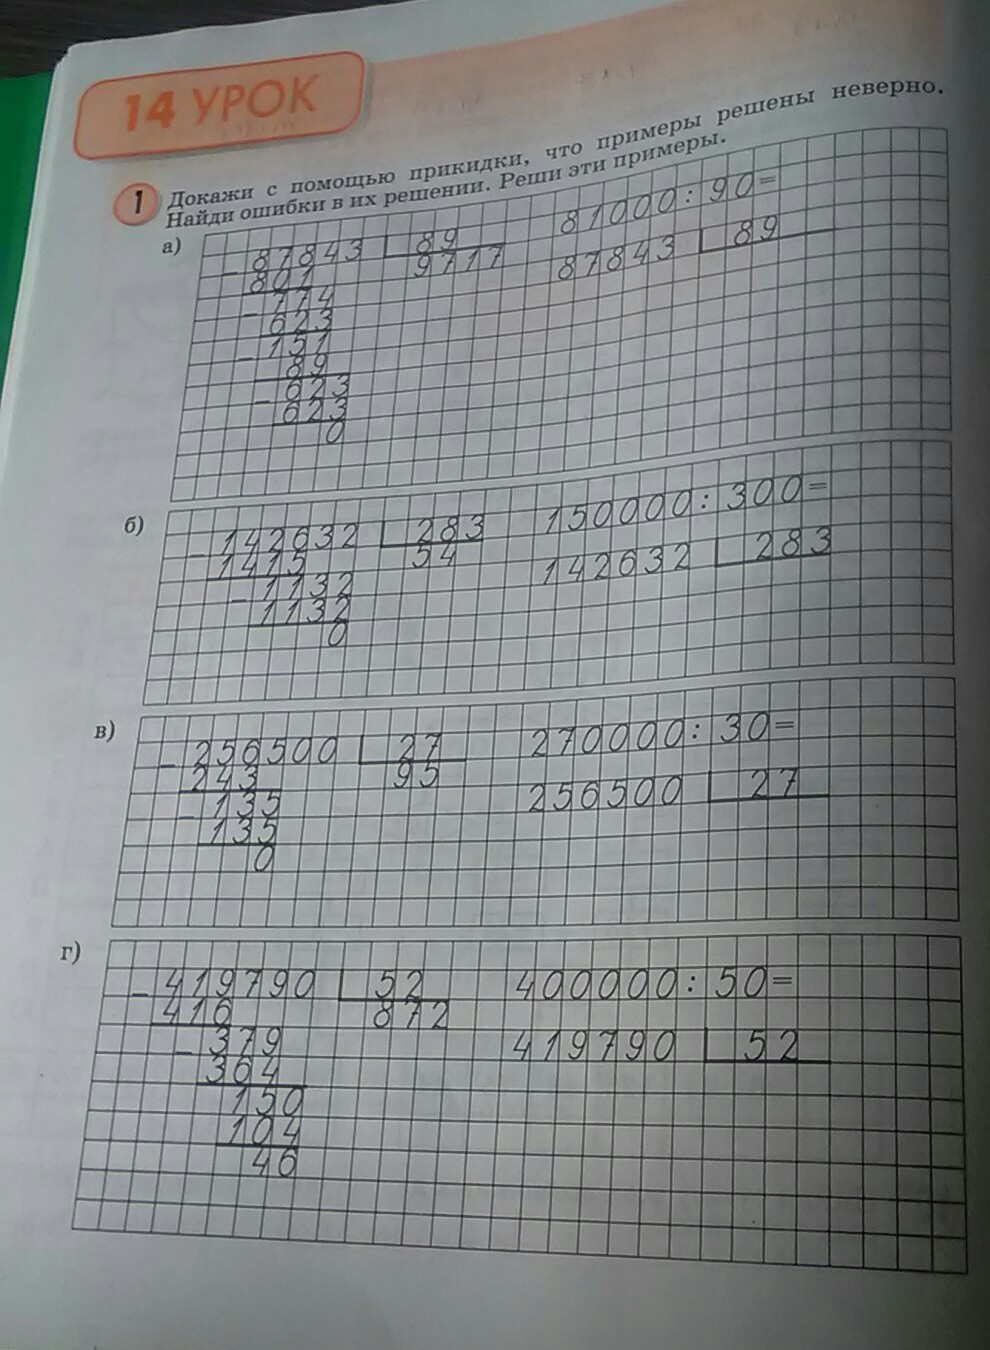 14 УРОК
1 Докажи с помощью прикидки, что примеры решены неверно.
Найди ошибки в их решении. Реши эти примеры.
а)
87843 89
− 801 9717
− 774
623
− 151
89
− 623
623
0
81000 : 90=
87843 89
б)
− 142632 283
1415 54
− 1132
1132
0
150000 : 300=
142632 283
в)
− 256500 27
243 95
− 135
135
0
270000 : 30=
256500 27
г)
− 419790 52
416 872
− 379
364
150
104
46
400000 : 50=
419790 52